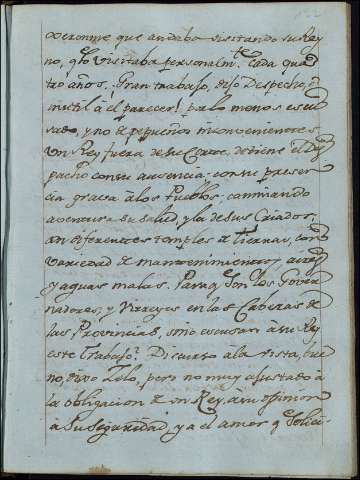 que andaba visitando su Rey
no, q̃ lo visitaba personalm.te cada qua
tro años. Gran trabajo, dijo Despecho, è
inutil à el parecer! p.r lo menos escu
sado, y no de pequeños inconvenientes.
Un Rey fuera de su Corte, detiene el Des
pacho con su ausencia: con su presen
cia grava à los Pueblos, caminando
aventura su salud, y la de sus Criados:
en diferentes temples de tierras, con
variedad de mantenimientos, aires
y aguas malas. Para q̃ son los Gover
nadores, y Virreyes en las Cabezas de
las Provincias, sino escusan à su Rey
este trabajo? Discurso à la vista, bue
no, dijo Zelo, pero no muy ajustado à
la obligacion de un Rey, à su opinion
à su seguridad, y a el amor q̃ solici-